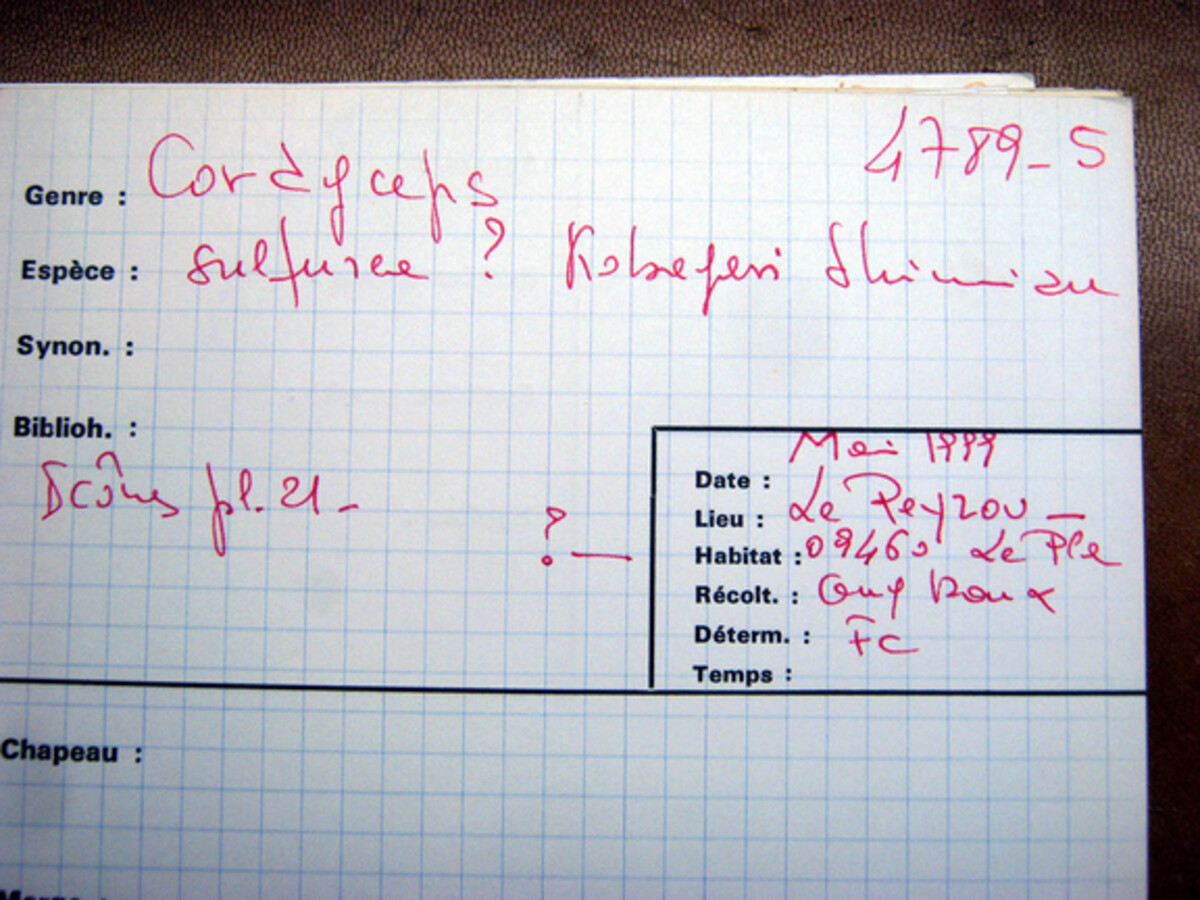 4789-5
Genre : Cordyceps
Espèce : sulfurea ? Kobayasi Shimizu
Synon. :
Biblioh. :
Icônes pl. 21 -
? —
Date : Mai 1999
Lieu : Le Peyrou —
Habitat : 09460 Le Pla
Récolt. : Guy Roux
Déterm. : FC
Temps :
Chapeau :